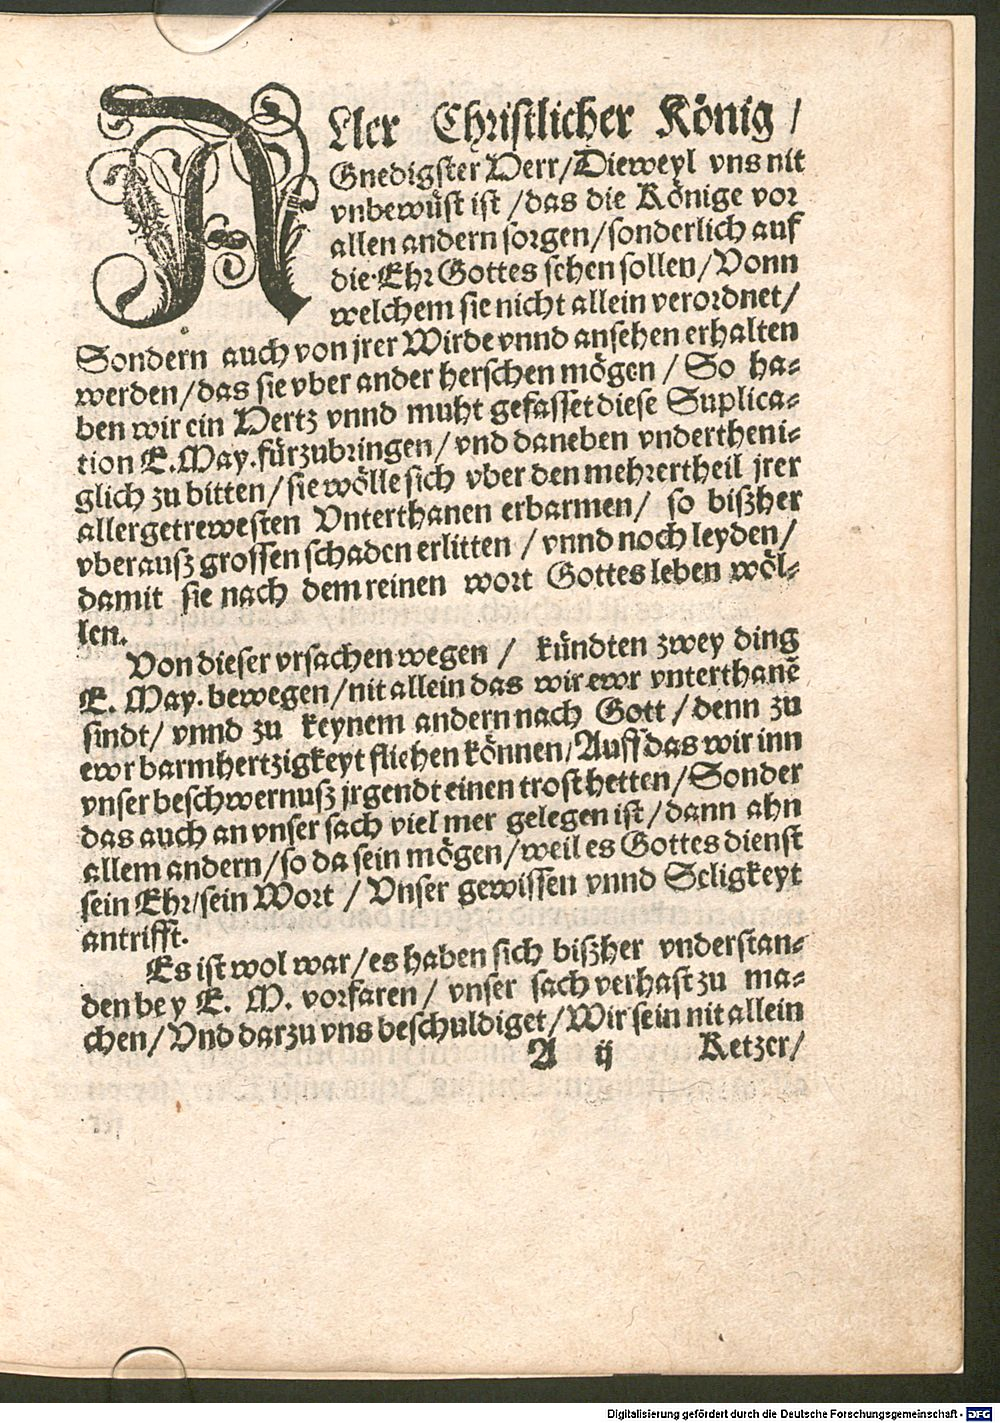 ALler Christlicher König /
Gnedigster Herr/Dieweyl vns nit
vnbewüst ist /das die Könige vor
allen andern sorgen/sonderlich auf
die Ehr Gottes sehen sollen/Vonn
welchem sie nicht allein verordnet/
Sondern auch von jrer Wirde vnnd ansehen erhalten
werden/das sie vber ander herschen mögen / So ha-
ben wir ein Hertz vnnd muht gefasset diese Suplica-
tion E.May.fürzubringen/vnd daneben vndertheni-
glich zu bitten/sie wölle sich vber den mehrertheil jrer
allergetrewesten Vnterthanen erbarmen/ so bißher
vberauß grossen schaden erlitten /vnnd noch leyden/
damit sie nach dem reinen wort Gottes leben wöl-
len.
Von dieser vrsachen wegen / kündten zwey ding
E. May. bewegen/nit allein das wir ewr vnterthanē
sindt/ vnnd zu keynem andern nach Gott /denn zu
ewr barmhertzigkeyt fliehen können/Auff das wir inn
vnser beschwernuß jrgendt einen trost hetten/Sonder
das auch an vnser sach viel mer gelegen ist/dann ahn
allem andern/so da sein mögen/weil es Gottes dienst
sein Ehr/sein Wort / Vnser gewissen vnnd Seligkeyt
antrifft.
Es ist wol war/es haben sich bißher vnderstan-
den bey E. M. vorfaren/ vnser sach verhast zu ma-
chen/Vnd darzu vns beschuldiget/Wir sein nit allein
A ij Ketzer/
Digitalisierung gefördert durch die Deutsche Forschungsgemeinschaft - DFG